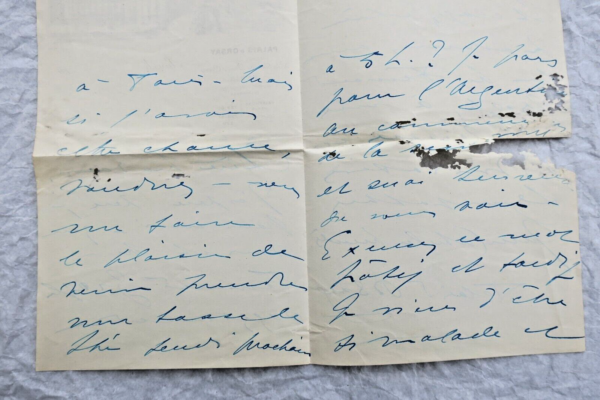 à Paris - Mais
si j'avais
cette chance,
voudriez - vous
me faire
le plaisir de
venir prendre
une tasse de
thé jeudi prochain
à 5 h. ? Je pars
pour l'Argentine
au commencement
de la
et serai heureuse
de vous voir -
Excusez ce mot
hâtif et tardif
Je viens d'être
si malade et